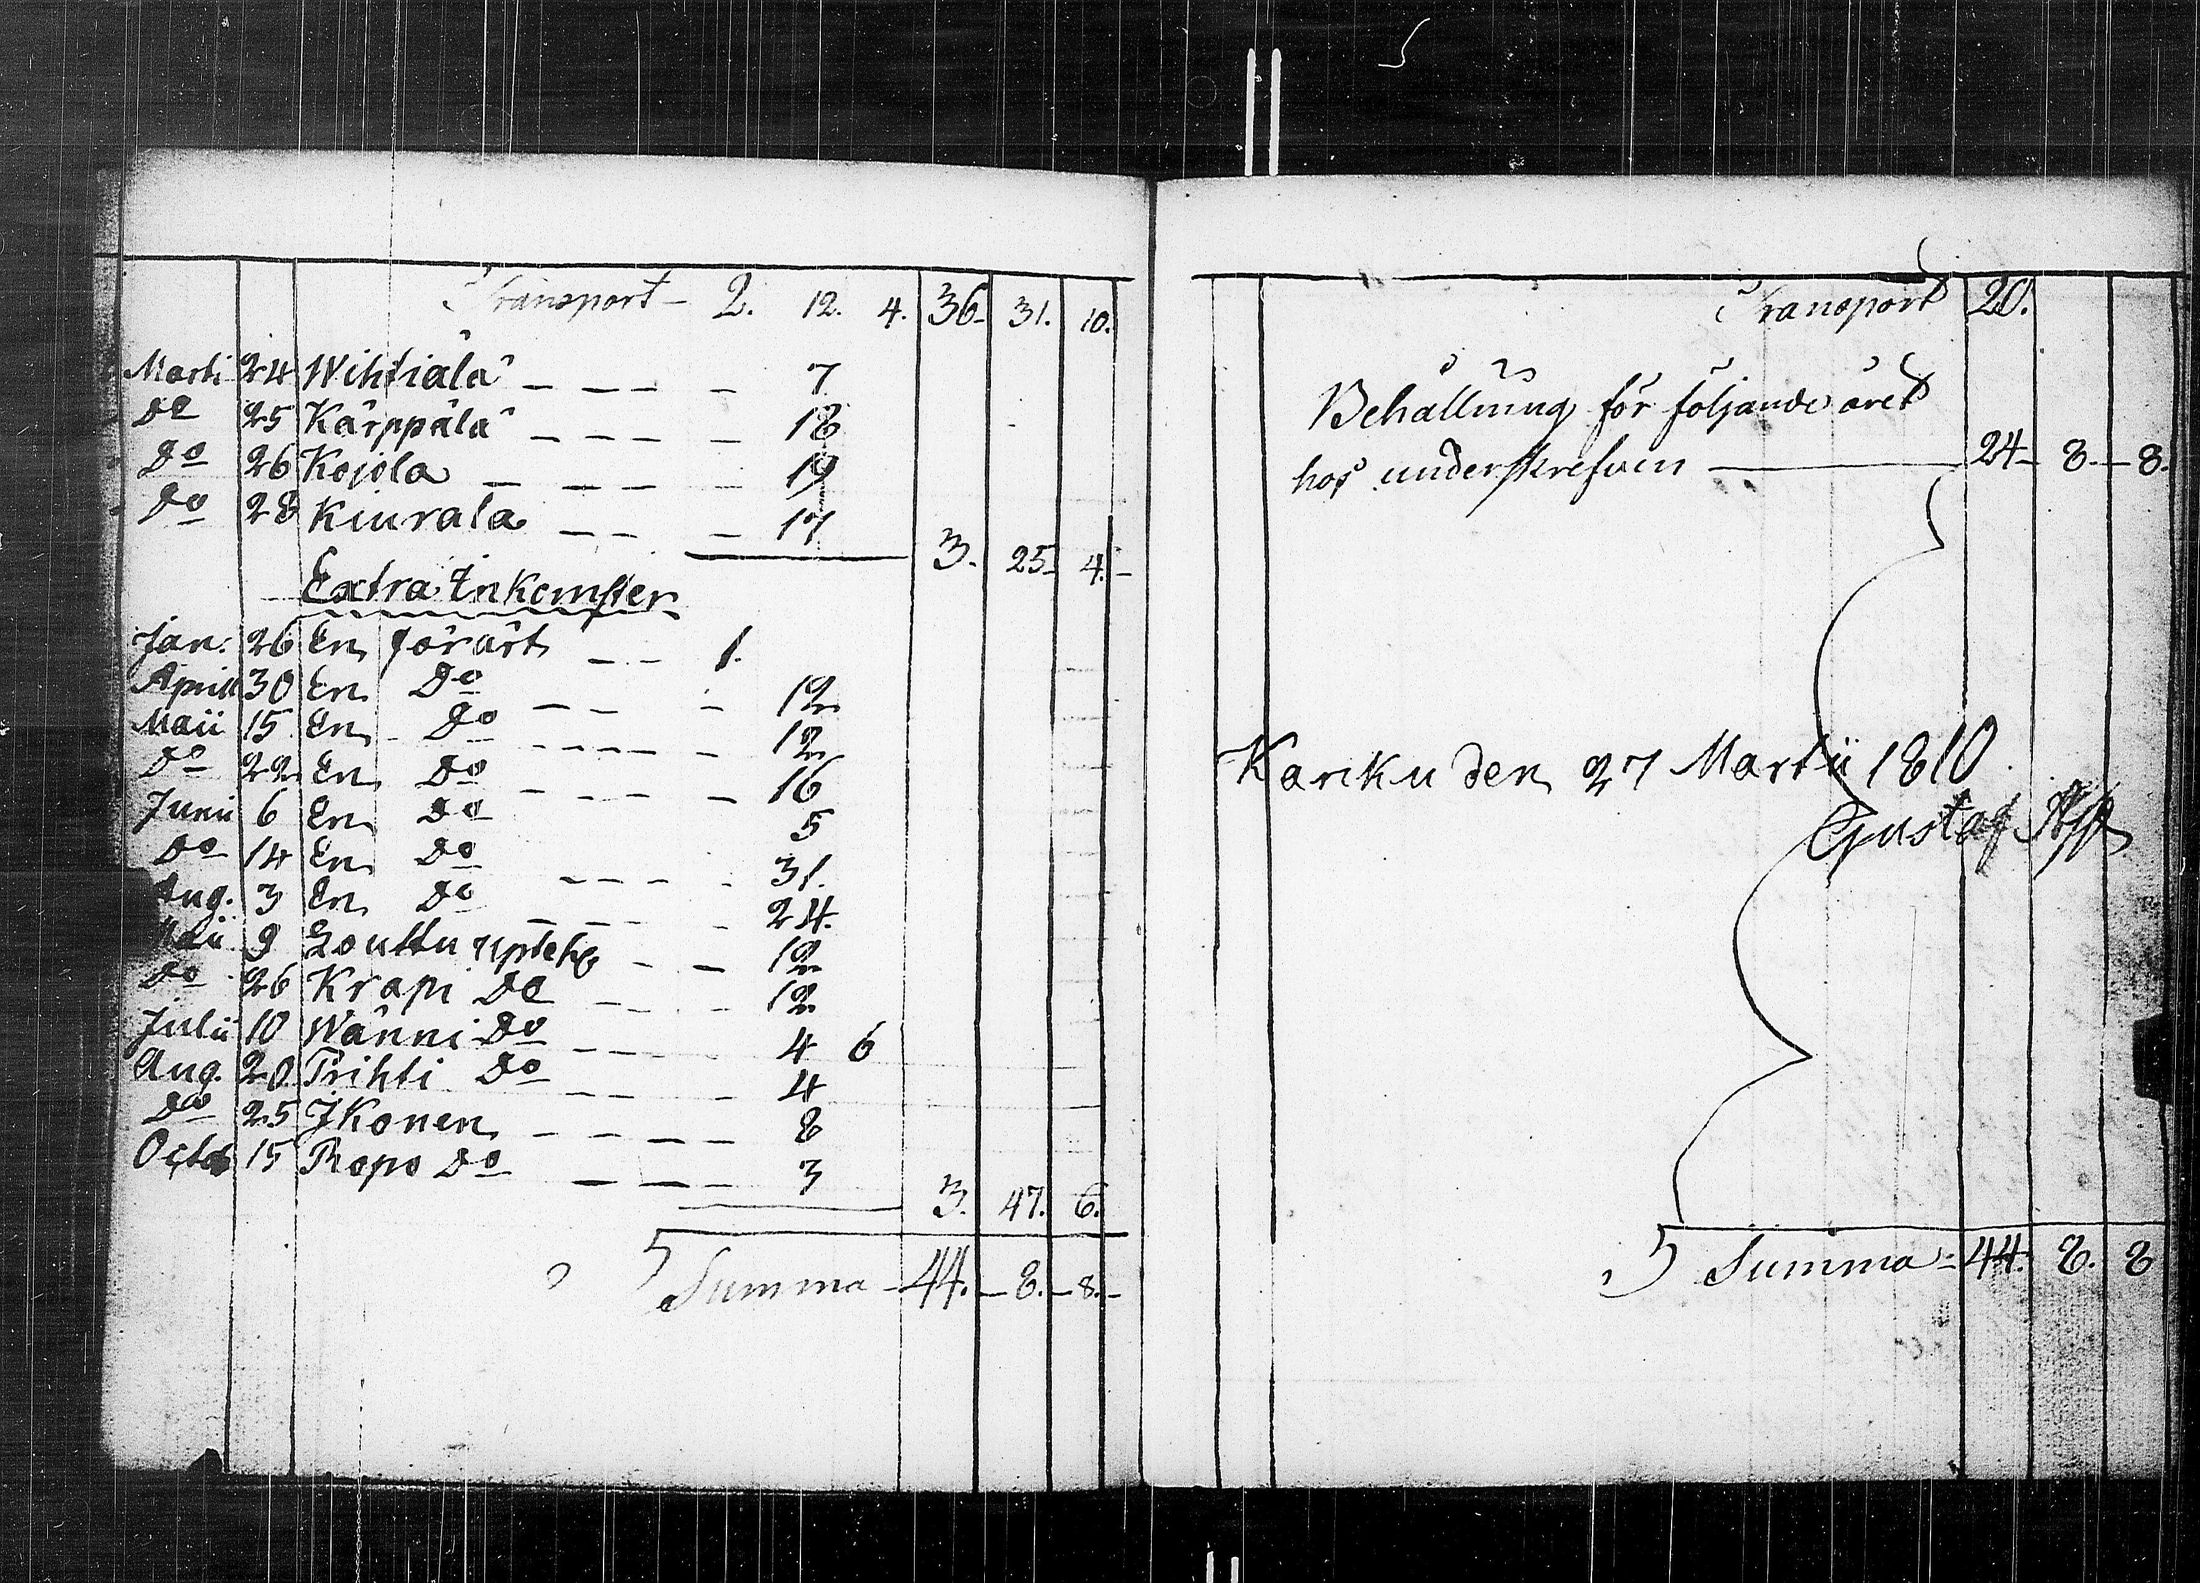 Transport – 2. 12. 4. 36. 31. 10.
Marti 24 Wihtiälä – – – – 7
Do 25 Kärppälä – – – – 18
Do 26 Kojola – – – – 19
Do 28 Kiurala – – – 17
3. 25 4.
Extra Inkomster
Jan. 26 En förärt – – 1.
April 30 En Do – – – – 12
Maii 15 En Do – – – – – 12
Do 22 En Do – – – – – 16
Junii 6 En Do 5
Do 14 En Do – – – – 31.
Aug. 3 En Do – – – – 24.
Maii 9 Gouttu – – 12
Do 26 Krapi Do – – – – 12
Julii 10 Wänni Do – – – – 4 6
Aug. 20 Prihti Do – – – – 4
Do 25 Ikonen – – – – – 8
Octob 15 Repo Do – – – – 3
3. 47. 6.
Summa – 44. – 8. – 8. –
Transport 20.
Behållning för följande året
hos underskrefven – 24 – 8. – 8.
Karku den 27 Martii 1810.
Gustaf
Summa = 44. 8. 8